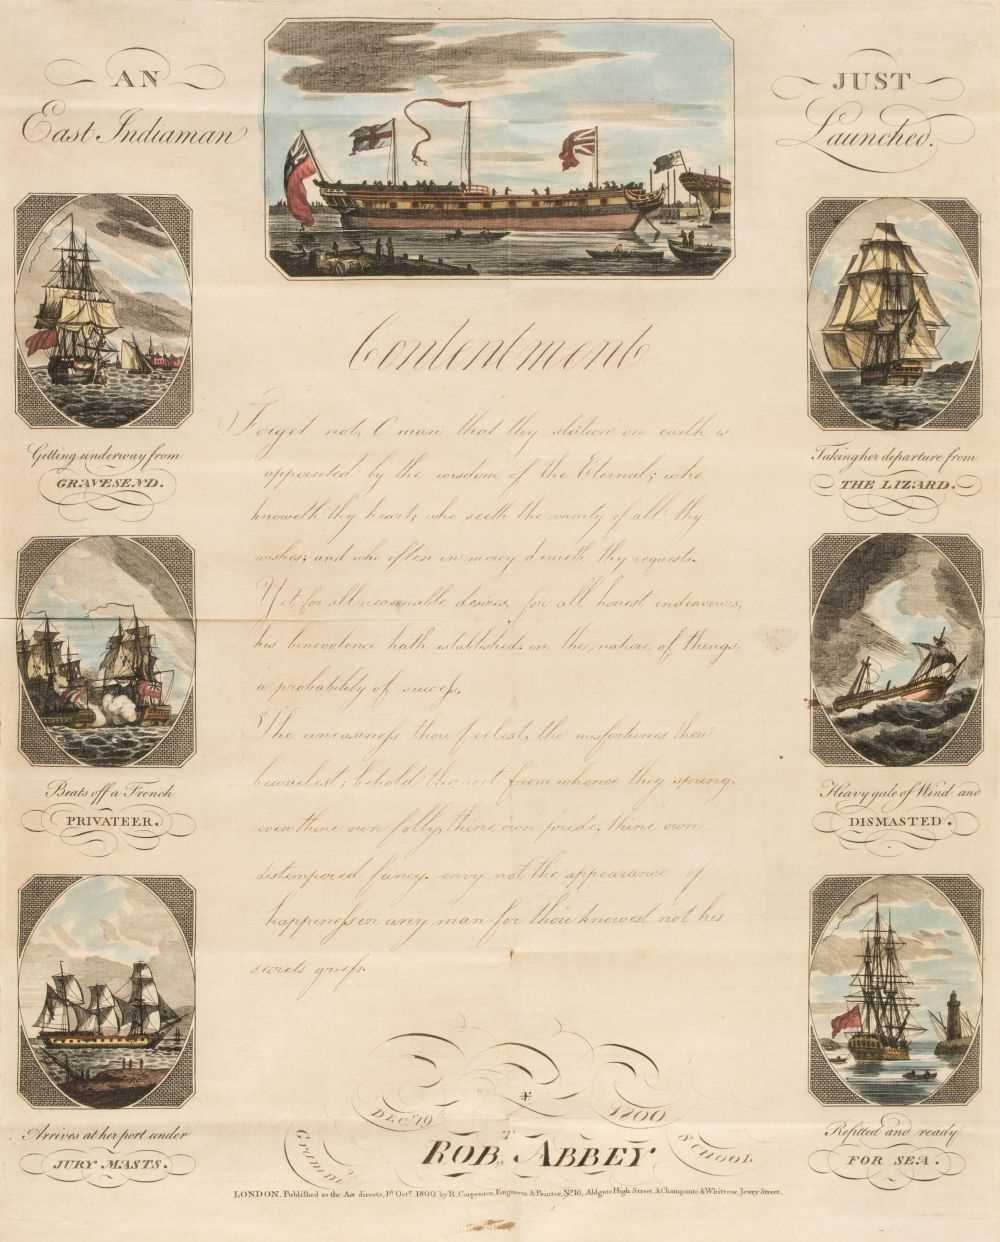 AN
East Indiaman
JUST
Launched.
Contentment
Forget not, O man that thy station on earth is
appointed by the wisdom of the Eternal; who
knoweth thy heart; who seeth the vanity of all thy
wishes; and who often in mercy denieth thy requests.
Yet for all reasonable desires, for all honest endeavours,
his benevolence hath established in the nature of things
a probability of succeſs.
The uneasineſs thou feelest, the misfortunes thou
bewailest; behold the root from whence they spring
even thine own folly, thine own pride, thine own
distempered fancy. envy not the appearance of
happineſs in any man for thou knowest not his
secrets griefs.
Getting underway from
GRAVESEND.
Taking her departure from
THE LIZARD.
Beats off a French
PRIVATEER.
Heavy gale of Wind and
DISMASTED.
Arrives at her port under
JURY MASTS.
Refitted and ready
FOR SEA.
Decr. 19th 1800
ROBT. ABBEY
Gramr. School
LONDON, Publiſhed as the Act directs, 1st Octr. 1800, by R. Carpenter, Engraver & Printer, No. 16, Aldgate High Street, & Champante & Whitrow, Jewry Street.